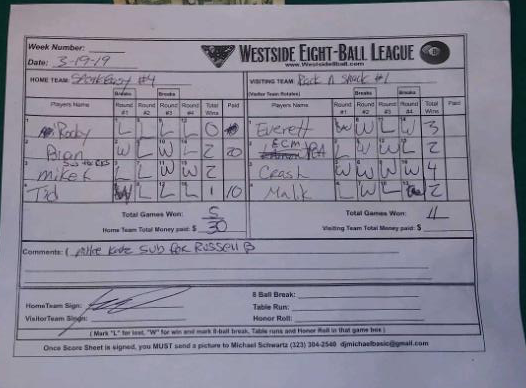 Week Number:
WESTSIDE EIGHT-BALL LEAGUE
www.Westside8ball.com
Date: 3-19-19
HOME TEAM: #4
VISITING TEAM: Rack n Snack #1
(Visitor Team Rotates)
Breaks Breaks Breaks Breaks
Players Name Round #1 Round #2 Round #3 Round #4 Total Wins Paid Players Name Round #1 Round #2 Round #3 Round #4 Total Wins Paid
Rocky L L L L 0 Everett W L W 3
W L W L 2 20 ECM L W W L 2
Sub for RUSS
Mike K L L W W 2 Crash W W W W 4
Tid W L L L 1 10 Malk L W L 2
Total Games Won: 5 Total Games Won: 11
Home Team Total Money paid: $ 30 Visiting Team Total Money paid: $
Comments: ( Mike Katz Sub for RUSSELL B
8 Ball Break:
HomeTeam Sign: Table Run:
VisitorTeam Sign: Honor Roll:
( Mark "L" for lost, "W" for win and mark 8-ball break, Table runs and Honor Roll in that game box )
Once Score Sheet is signed, you MUST send a picture to Michael Schwartz (323) 304-2540 djmichaelbasic@gmail.com